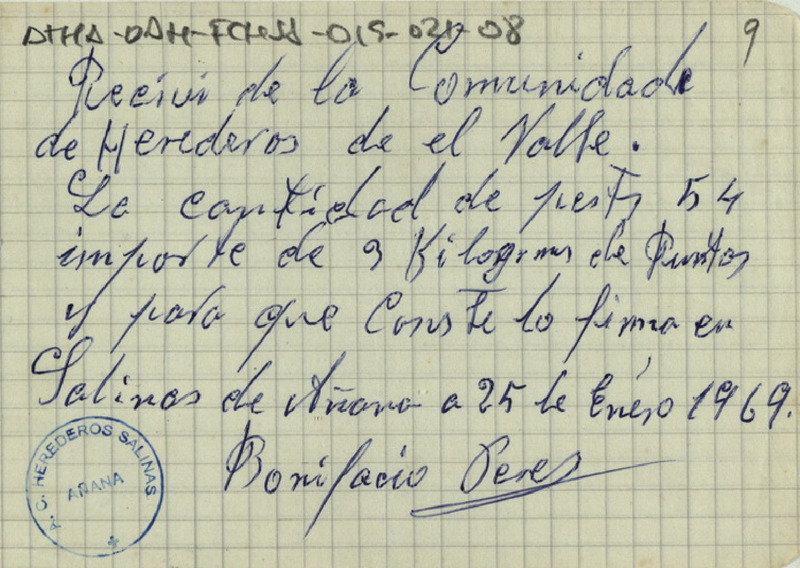 ATHA-DAH-FCHSA-019-021-08
9
Recivi de la Comunidade
de Herederos de el Valle.
La cantidad de pests 54
importe de 3 Kilogrms de Puntas
y para que Conste lo firma en
Salinas de Añana a 25 de Enéro 1969.
Bonifacio Peres
P. C. HEREDEROS SALINAS
AÑANA